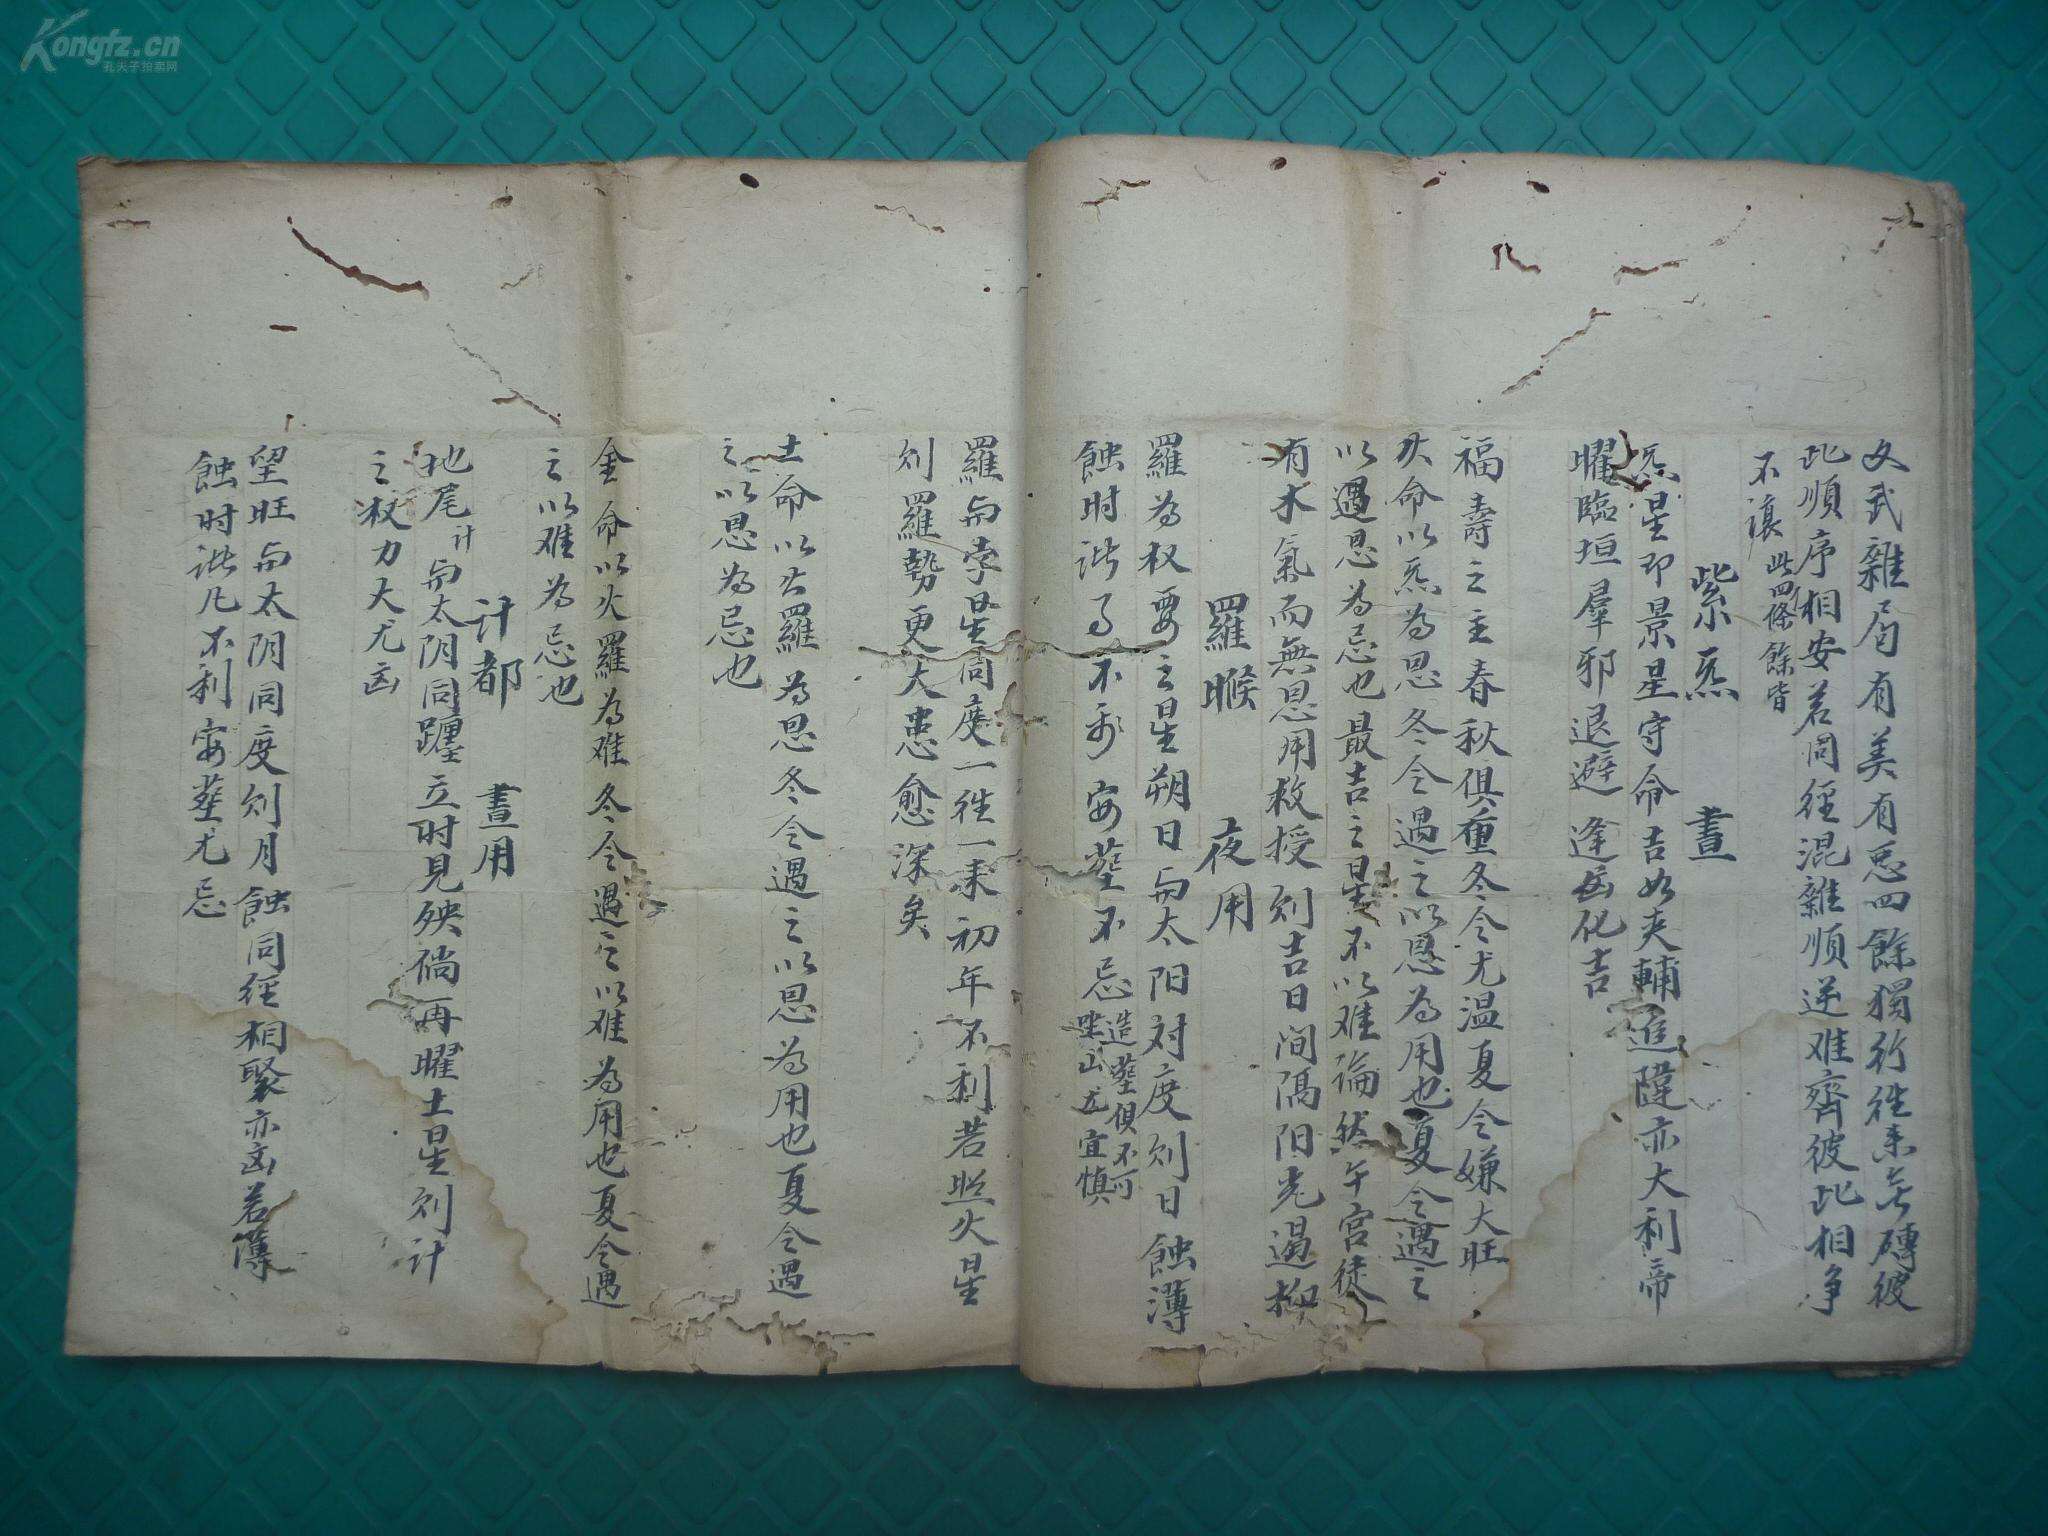 文武雜局有美有惡四餘獨行往來無礙彼
此順序相安若同經混雜順逆难齊彼此相争
不讓此四條餘皆
紫炁 晝
炁星即景星守命吉如夹輔進隨亦大利帝
曜臨垣羣邪退避逢凶化吉
福壽之主春秋俱重冬令尤温夏令嫌大旺
火命以炁為恩冬令遇之以恩為用也夏令遇之
以遇恩為忌也最吉之星不以难論然午宫徒
有木氣而無恩用救授则吉日间隔阳光遏抑
羅睺 夜用
羅為权要之星朔日与太阳対度则日蝕薄
蝕时诸事不利安塟不忌造塟俱不可坐山尤宜慎
羅与孛星同度一往一来初年不利若照火星
则羅勢更大患愈深矣
土命以火羅為恩冬令遇之以恩為用也夏令遇
之以恩為忌也
金命以火羅為难冬令遇之以难為用也夏令遇
之以难為忌也
计都 晝用
地尾计与太阴同躔立时見殃倘再曜土星则计
之权力大尤凶
望旺与太阴同度则月蝕同经相聚亦凶若薄
蝕时诸凡不利安塟尤忌
Kongfz.cn
孔夫子拍卖网